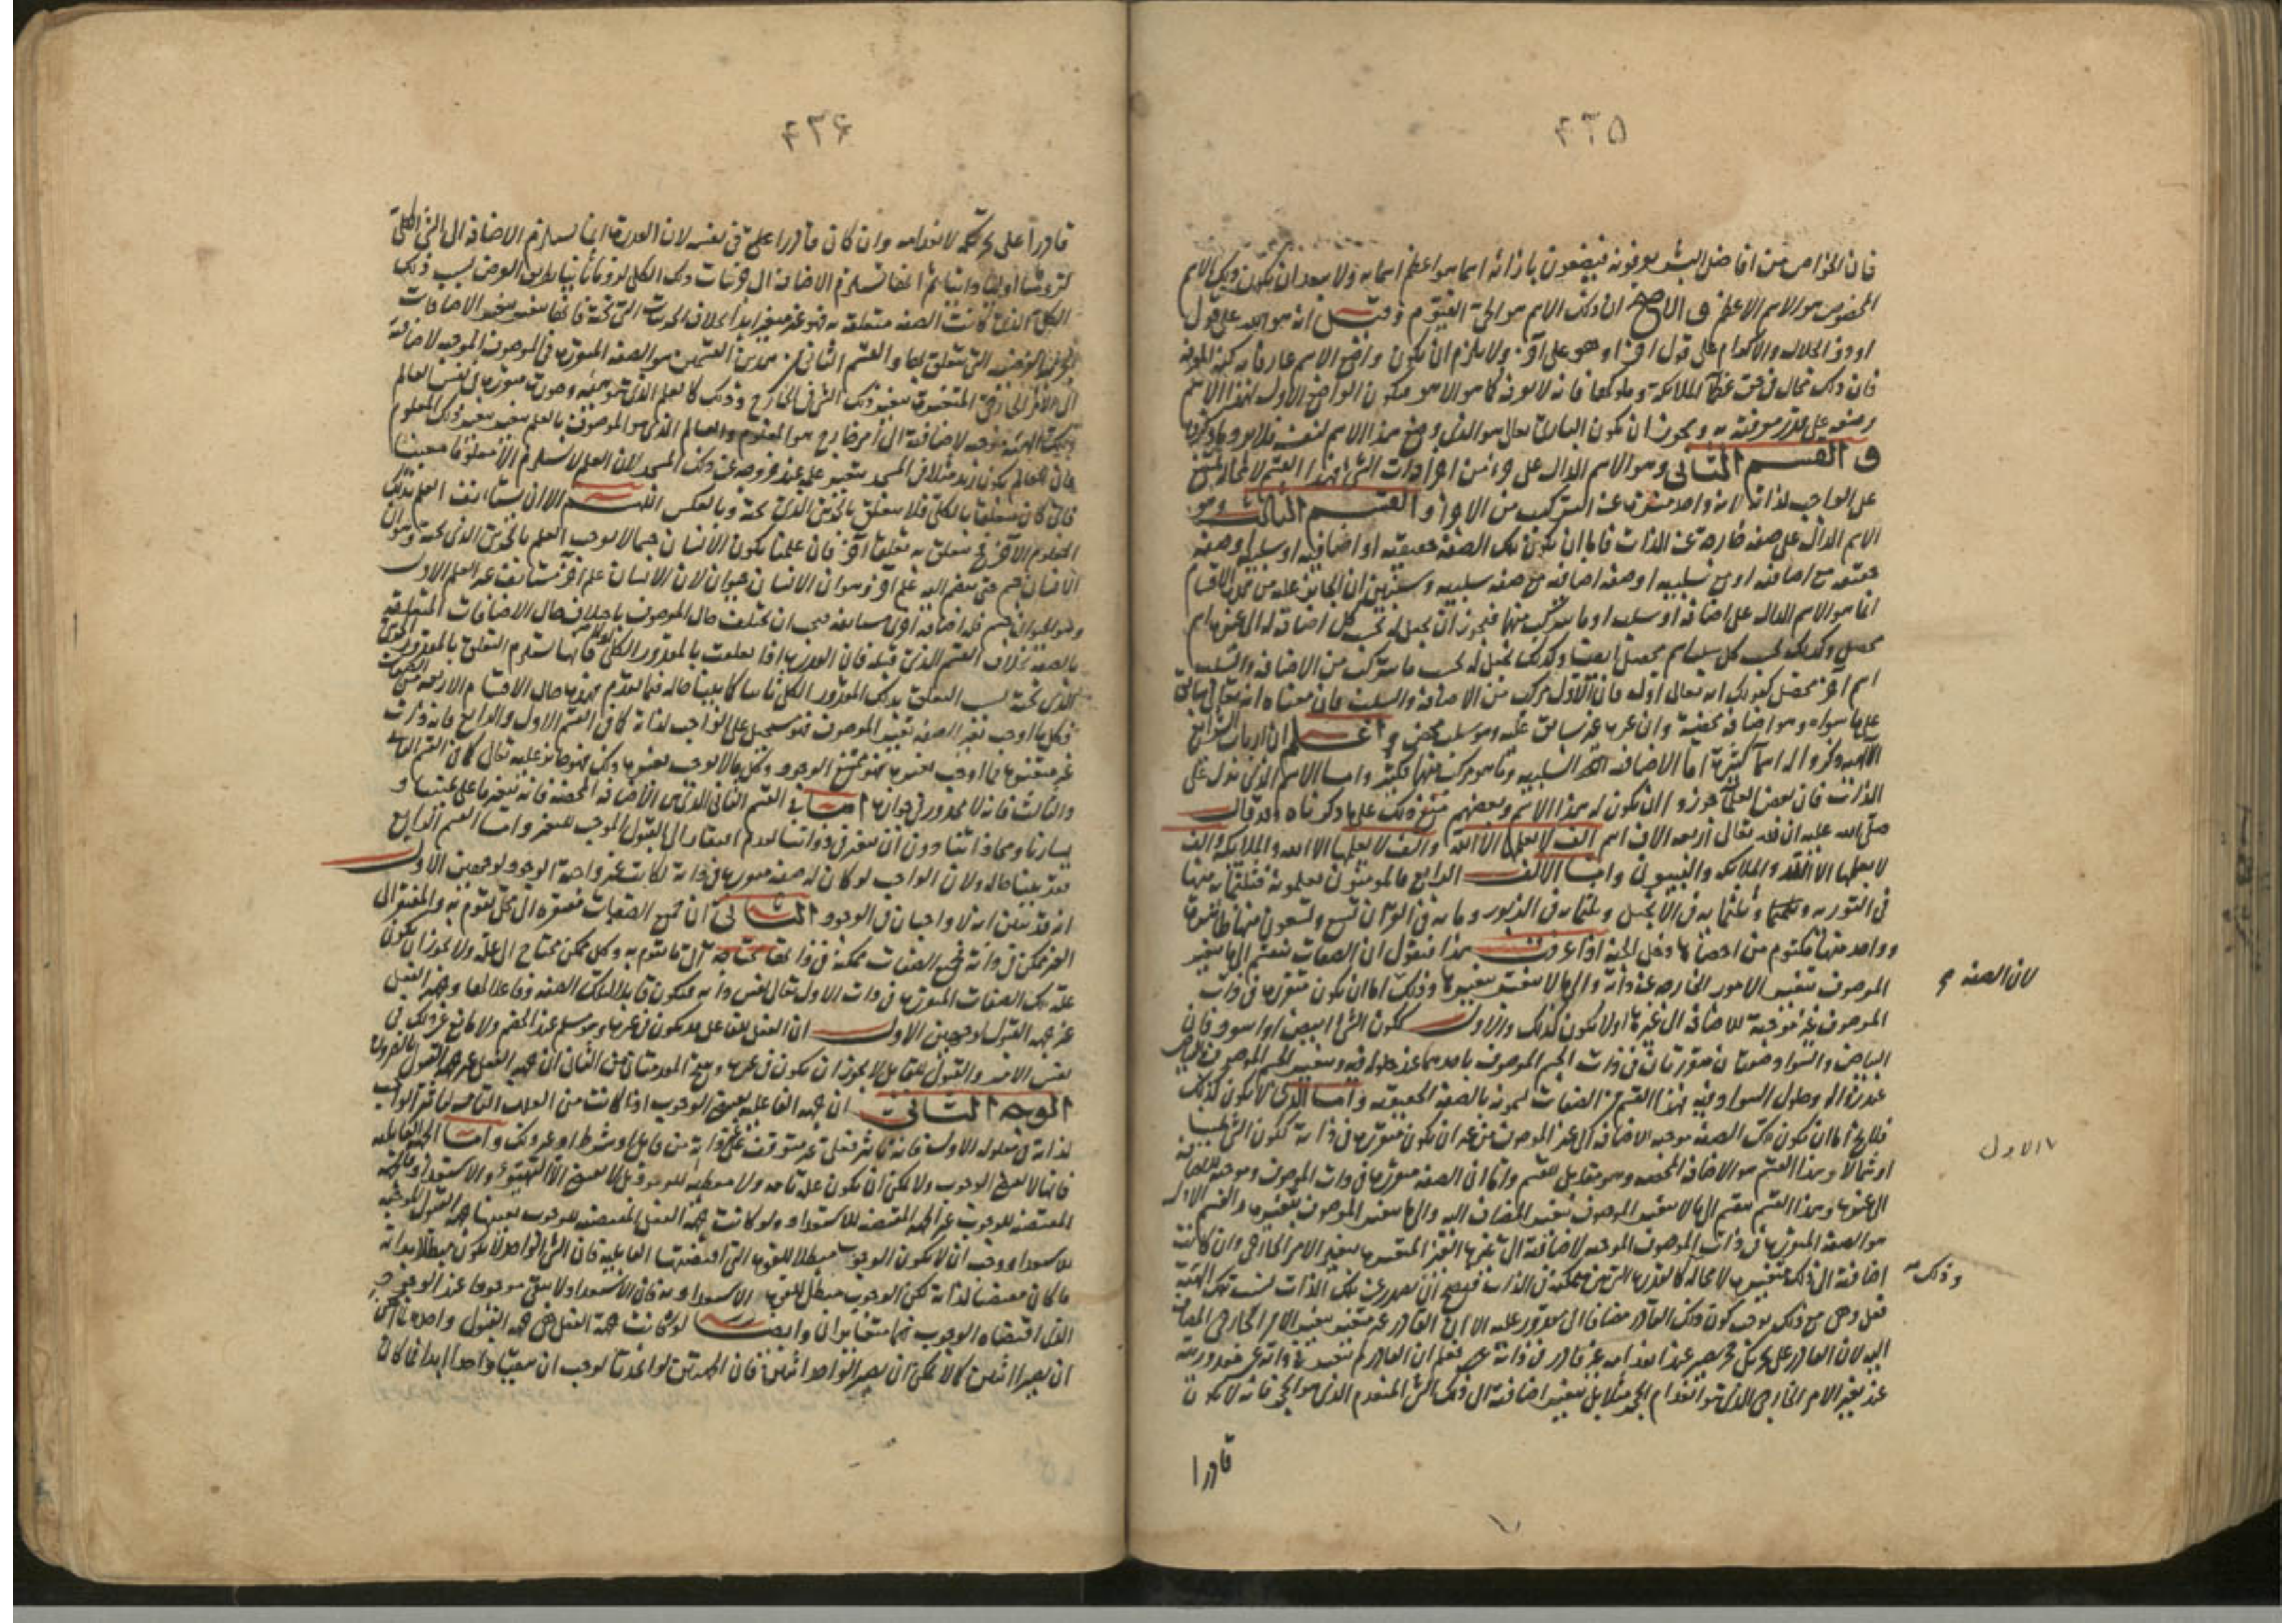 ٤٣٥
فان الخواص من افاضل البشر يعرفونه فيضعون بازائه اسما هو اعظم اسمائه ولا يبعد ان يكون ذلك الاسم
المخصوص هو الاسم الاعظم و ان ذلك الاسم هو الحي القيوم وقيل انه هو الله على قول
او ذو الجلال والاكرام على قول اخر او هو على آخر ولا يلزم ان يكون واضع الاسم عارفا به كنه المعرفة
فان ذلك محال في حق الملائكة فانه لا يعرفه كما هو الا هو فيكون الواضع الاول لهذا الاسم
وضعه على قدر معرفته به ويجوز ان يكون البارئ تعالى هو الذي وضع هذا الاسم لنفسه
و القسم الثاني وهو الاسم الدال على جزء من اجزاء ذات الشئ فهذا القسم لا محالة يمتنع
على الواجب لذاته لانه واحد منزه عن التركيب من الاجزاء و القسم الثالث وهو
الاسم الدال على صفة خارجة عن الذات فاما ان يكون تلك الصفة حقيقية او اضافية او سلبية او صفة
حقيقية مع اضافية او مع سلبية او صفة اضافية مع صفة سلبية وستبين ان الجائز عليه من هذه الاقسام
انما هو الاسم الدال على اضافة او سلب او ما يتركب منهما فيجوز ان يجعل له بحسب كل اضافة له الى غيره اسم
محصل وكذلك بحسب كل سلب اسم محصل ايضا وكذلك يجعل له بحسب ما يتركب من الاضافة والسلب
اسم آخر محصل كقولك انه تعالى اول فان الاول مركب من الاضافة والسلب فان معناه انه تعالى سابق
على ما سواه وهو اضافة محضة وان غيره غير سابق عليه وهو سلب محض و اعلم ان ارباب الشرائع
الالهية ذكروا له اسماء كثيرة اما الاضافية السلبية وما هو مركب منهما فكثير واما الاسم الذي يدل على
الذات فان بعض العلماء جوزوا ان يكون له هذا الاسم وبعضهم منع ذلك على ما ذكرناه وقد قال
صلى الله عليه ان لله تعالى اربعة الاف اسم الف لا يعلمها الا الله والف لا يعلمها الا الله والملائكة والف
لا يعلمها الا الله والملائكة والنبيون واما الالف الرابع فالمؤمنون يعلمونه فثلثمائة منها
في التورية وثلثمائة في الانجيل وثلثمائة في الزبور ومائة في القرآن تسع وتسعون منها ظاهرة
وواحد منها مكتوم من احصاها دخل الجنة اذا عرفت هذا فنقول ان الصفات تنقسم الى ما يتغير
الموصوف بتغير الامور الخارجة عن ذاته والى ما لا يتغير بتغيرها وذلك اما ان يكون متقررة في ذات
الموصوف غير موجبة للاضافة الى غيرها اولا يكون كذلك والاول ككون الشئ ابيض او اسود فان
البياض والسواد صفتان متقررتان في ذات الجسم الموصوف باحدهما عند حلوله فيه ويتغير الجسم الموصوف
عند زواله وحلول السواد فيه فهذا القسم من الصفات يسمونه بالصفة الحقيقية واما الذي لا يكون كذلك
فلا يخ اما ان يكون تلك الصفة موجبة الاضافة الى غير الموصوف من غير ان يكون متقررة في ذاته ككون الشئ يمينا
او شمالا وهذا القسم هو الاضافة المحضة وهو مقابل للقسم واما ان الصفة متقررة في ذات الموصوف وموجبة للاضافة
الى غيره وهذا القسم ينقسم الى ما لا يتغير الموصوف بتغير المضاف اليه والى ما يتغير الموصوف بتغيره والقسم الاول
هو الصفة المتقررة في ذات الموصوف الموجبة لاضافته الى غيرها الغير المتغيرة بتغير الامر الخارجي وان كانت
اضافته الى ذلك متغيرة لا محالة كالقدرة التي هي هيئة ممكنة في الذات فيصح ان يصدر عن تلك الذات بسبب تلك الهيئة
فعل وهي مع ذلك يوجب كون ذلك القادر مضافا الى مقدور عليه الا ان القادر غير متغير بتغير الامر الخارجي المضاف
اليه لان القادر على تحريك حجر يصير عند انعدامه غير قادر في ذاته فعلم ان القادر لم يتغير في ذاته عن قدرته
عند تغير الامر الخارجي الذي هو انعدام الحجر مثلا بل يتغير اضافته الى ذلك الشئ المنعدم الذي هو الحجر فانه لا يكون
قادرا
لان الصفة
الاول
وذلك
٤٣٦
قادرا على تحريكه لانعدامه وان كان قادرا عليه في نفسه لان القدرة انما يستلزم الاضافة الى الشئ الكلي
لزوما اوليا ذاتيا ثم انها تستلزم الاضافة الى جزئيات ذلك الكلي لزوما ثانيا بطريق العرض بسبب ذلك
الكلي الذي كانت الصفة متعلقة به فهو غير متغير ابدا بخلاف الجزئيات التي تحته فانها تتغير بتغير الاضافات
الجزئية العرضية التي تتعلق بها والقسم الثاني من هذين القسمين هو الصفة المتقررة في الموصوف الموجبة لاضافته
الى الامر الخارجي المتغيرة بتغير ذلك الشئ في الخارج وذلك كالعلم الذي هو هيئة وصورة متقررة في نفس العالم
وتلك الهيئة موجبة لاضافته الى امر خارج هو المعلوم والعالم الذي هو الموصوف بالعلم يتغير بتغير ذلك المعلوم
فان العالم بكون زيد مثلا في المسجد يتغير علمه عند خروجه عن ذلك المسجد لان العلم لا يستلزم الا معلوما معينا
فان كان متعلقا بالكلي فلا يتعلق بالجزئي الذي تحته وبالعكس اللهم الا ان يستانف العلم بذلك
المعلوم الآخر فح يتعلق به تعلقا آخر فان علمنا بكون الانسان جسما لا يوجب العلم بالجزئي الذي تحته وهو ان
الانسان جسم حتى ينضم اليه علم آخر وهو ان الانسان حيوان لان الانسان علم آخر مستانف غير العلم الاول
وهو الحيوان جسم فله اضافة اخرى مستانفة فيجب ان يختلف حال الموصوف باختلاف حال الاضافات المتعلقة
بالصفة بخلاف القسم الذي قبله فان القدرة اذا تعلقت بالمقدور الكلي فانها تستلزم التعلق بالمقدور الجزئي
الذي تحته بسبب التعلق بذلك المقدور الكلي ثانيا كما بينا حاله فيما تقدم فهذه حال الاقسام الاربعة من الصفات
فكل ما اوجب تغير الصفة تغير الموصوف فهو مستحيل على الواجب لذاته كما في القسم الاول والرابع فانه ذات
غير متغيرة فما اوجب تغيره فهو ممتنع الوجود وكل ما لا يوجب تغيره ذلك فهو جائز عليه تعالى كما في القسم الثاني
والثالث فانه لا محذور في جوازه اما في القسم الثاني الذي هي الاضافة المحضة فانه يتغير ما على يميننا و
يسارنا ومحاذاتنا دون ان يتغير في ذواتنا لعدم افتقاره الى القبول الموجب للتغير واما القسم الرابع
فقد بينا حاله ولان الواجب لو كان له صفة متقررة في ذاته لكانت غير واجبة الوجود لوجهين الاول
انه قد تبين انه لا واجبان في الوجود الثاني ان جميع الصفات مفتقرة الى محل تقوم به والمفتقر الى
الغير ممكن في ذاته فجميع الصفات ممكنة في ذاتها محتاجة الى ما تقوم به وكل ممكن محتاج الى علة ولا يجوز ان يكون
علة تلك الصفات المتقررة في ذات الاول تعالى نفس ذاته فتكون قابلا لتلك الصفة وفاعلا لها وجهة الفعل
غير جهة القبول لوجهين الاول ان الفعل للفاعل قد يكون في غيره وهو مسلم عند الخصم ولا مانع عن ذلك في
نفس الامر والقبول للقابل لا يجوز ان يكون في غيره ينتج المقدمتان من الثاني ان جهة الفعل غير جهة القبول بالضرورة
الوجه الثاني ان جهة الفاعلية يعطي الوجوب اذا كانت من العلل التامة كتأثير الواجب
لذاته في معلوله الاول فانه تأثير فعلي غير متوقف على غير ذاته من قابل او شرط او غير ذلك واما الجهة القابلية
فانها لا يعطي الوجوب ولا يمكن ان يكون علة تامة ولا معطية للوجود بل لا يعطي الا التهيؤ والاستعداد فالجهة
المقتضية للوجوب غير الجهة المقتضية للاستعداد ولو كانت جهة الفعل المقتضية للوجوب بعينها جهة القبول الموجبة
للاستعداد وجب ان لا يكون الوجوب مبطلا للقوة التي اقتضتها القابلية فان الشئ الواحد لا يكون مبطلا بذاته
ما كان مقتضيا لذاته لكن الوجوب مبطل للقوة الاستعدادية فان الاستعداد لا يبقى موجودا عند الوجوب
الذي اقتضاه الوجوب فهما متغايران وايضا لو كانت جهة الفعل هي جهة القبول
ان يصيرا اثنين كما لا يمكن ان يصير الواحد اثنين فان الجهتين لو اتحدتا لوجب ان يبقيا واحدا ابدا فما كان